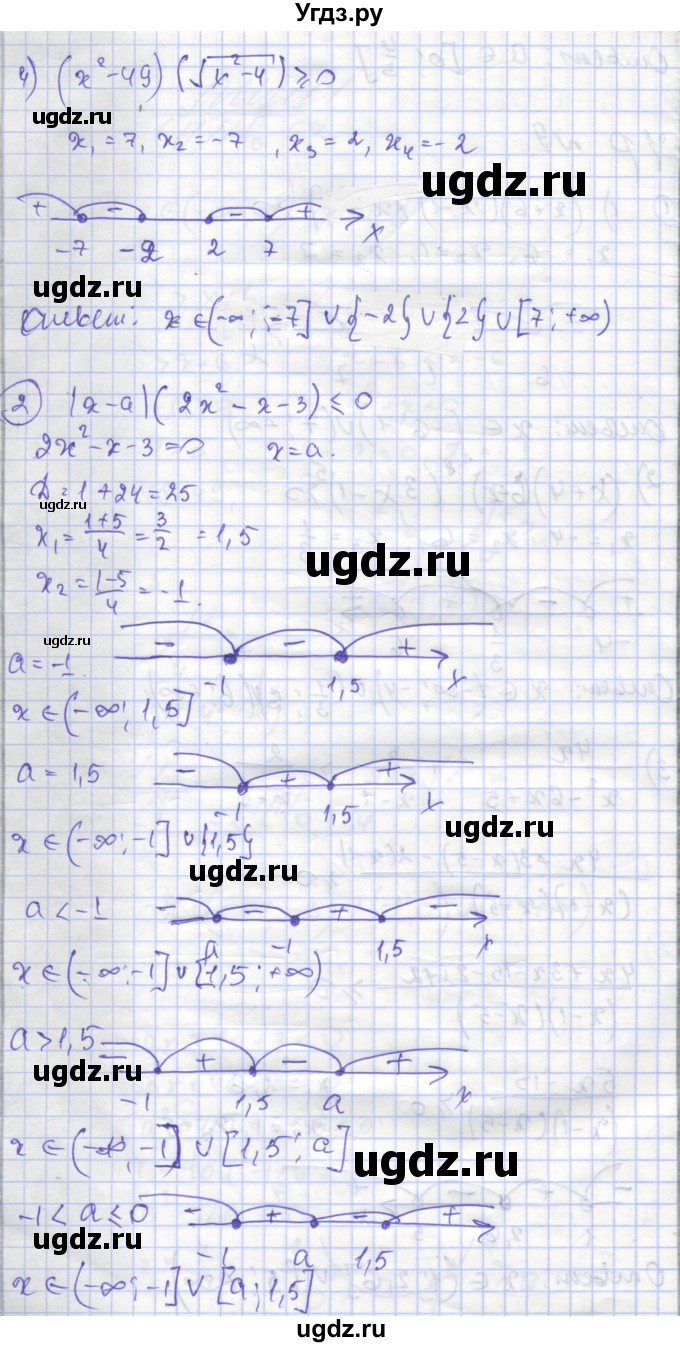 Угдз.ру
4) (x²-49)(√x²-4) ⩾ 0
x₁ = 7, x₂ = -7 , x₃ = 2, x₄ = -2
ugdz.ru
+ - - + x
-7 -2 2 7
ugdz.ru
Ответ: x ∈ (-∞; -7] ∪ {-2} ∪ {2} ∪ [7; +∞)
2) |x-a|(2x²-x-3) ⩽ 0
2x²-x-3=0 x=a.
Д=1+24=25
x₁ = (1+5)/4 = 3/2 = 1,5
ugdz.ru
x₂ = (1-5)/4 = -1.
ugdz.ru
a = -1. - - + x
-1 1,5
x ∈ (-∞; 1,5]
ugdz.ru
a = 1,5 - + + x
-1 1,5
ugdz.ru
x ∈ (-∞; -1] ∪ {1,5}
ugdz.ru
a < -1 - - + - x
a -1 1,5
x ∈ (-∞; -1] ∪ [1,5; +∞)
a > 1,5 - + - + x
ugdz.ru
-1 1,5 a
x ∈ (-∞, -1] ∪ [1,5; a]
ugdz.ru
-1 < a ⩽ 0 - + - +
ugdz.ru
-1 a 1,5
x ∈ (-∞; -1] ∪ [a; 1,5]
ugdz.ru